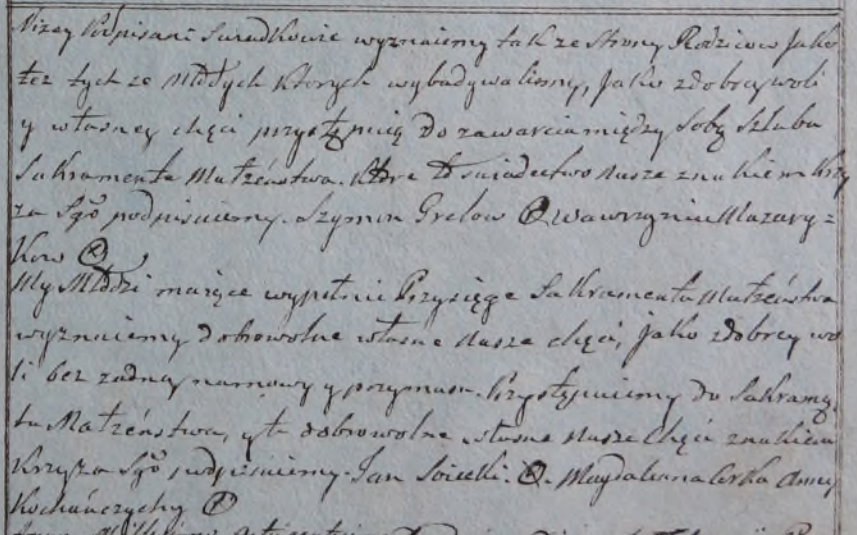 Niżey Podpisani Swiadkowie wyznaiemy tak ze Strony Rodzicow Jako
też tych ze Młodych ktorych wybadywalismy, Jako zdobrey woli
y własney chęci przystępuią Do zawarcia między Sobą Szlubu
Sakramenta Małżeństwa. Ktore to swiadectwo nasze znakiem krzy
za Sgo podpisuiemy. Szymon Grelow Wawrzyniec Mazary=
kow
My Młodzi maiące wypełnić Przysięge Sakramenta Małżeństwa
wyznaiemy dobrowolne własne nasze chęci, Jako zdobrey wo
li bez zadney namowy y przymusu. Przystępuiemy do Sakramę
tu Małżeństwa, y te dobrowolne własne nasze chęci znakiem
Krzyża Sgo podpisuiemy. Jan Magdalenna Corka Anny
Kochańczychy